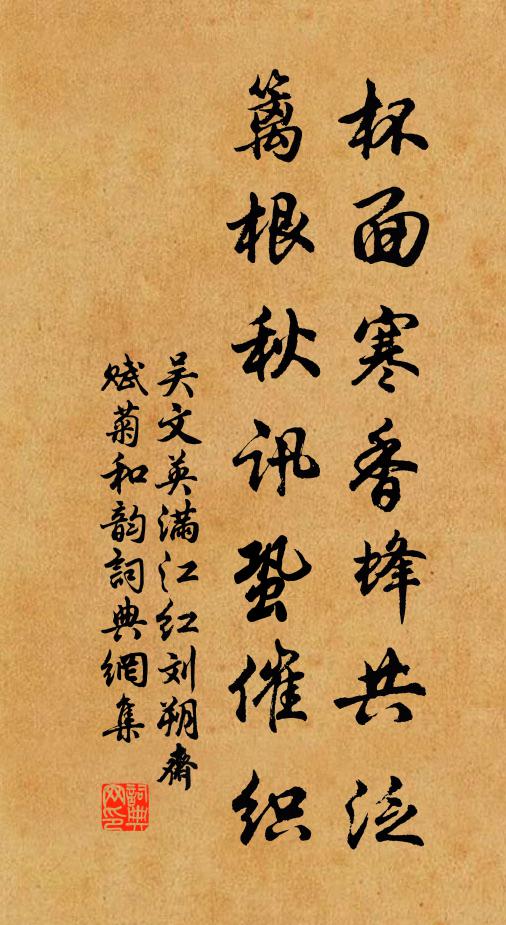 杯面寒香蜂共泛
篱根秋讯蛩催织
吴文英满江红刘朔斋
赋菊和韵词典網集
詞典網印